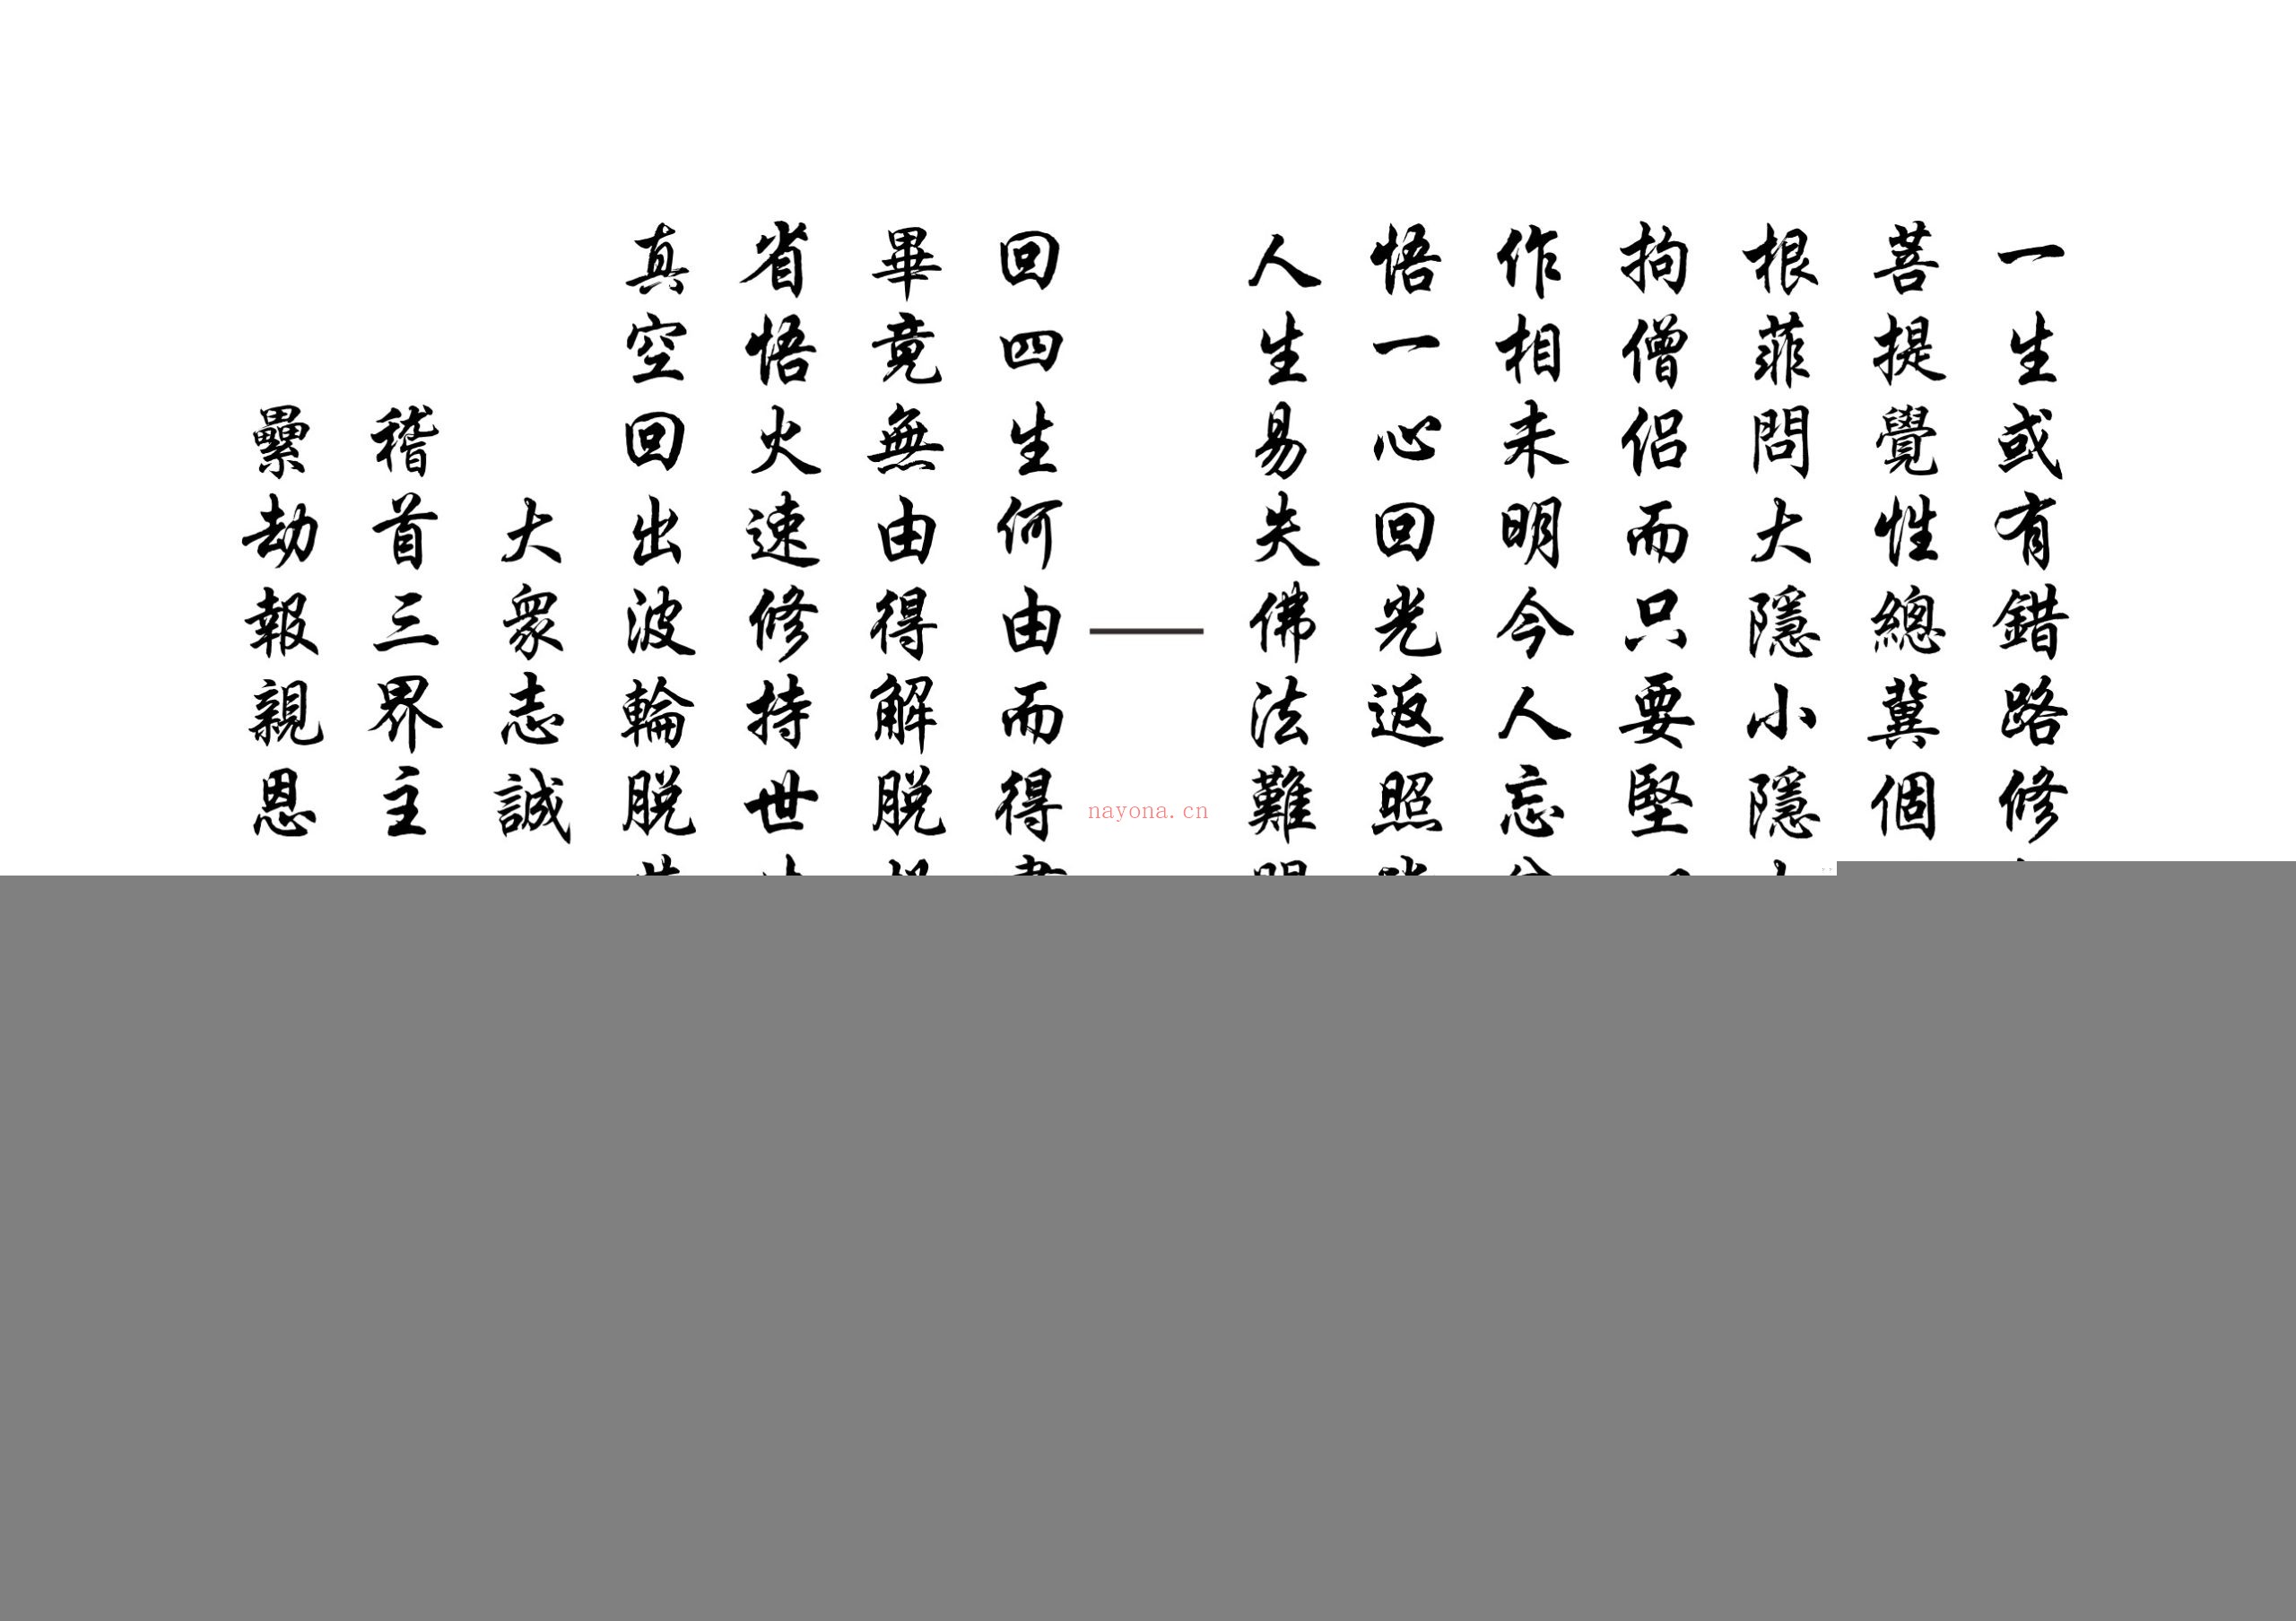 一生或有錯路修
菩提覺性總冀個
根菲問大隱小隱
拘僧侶而只要堅
作相未明今人忘
悟一心回光返照
人生易失佛法難
回四生何由而得
畢竟無由得解脱
省悟火速修持世
真空回出波輪脱
大衆志誠
稽首三界主
曩劫報親恩
nayona.cn